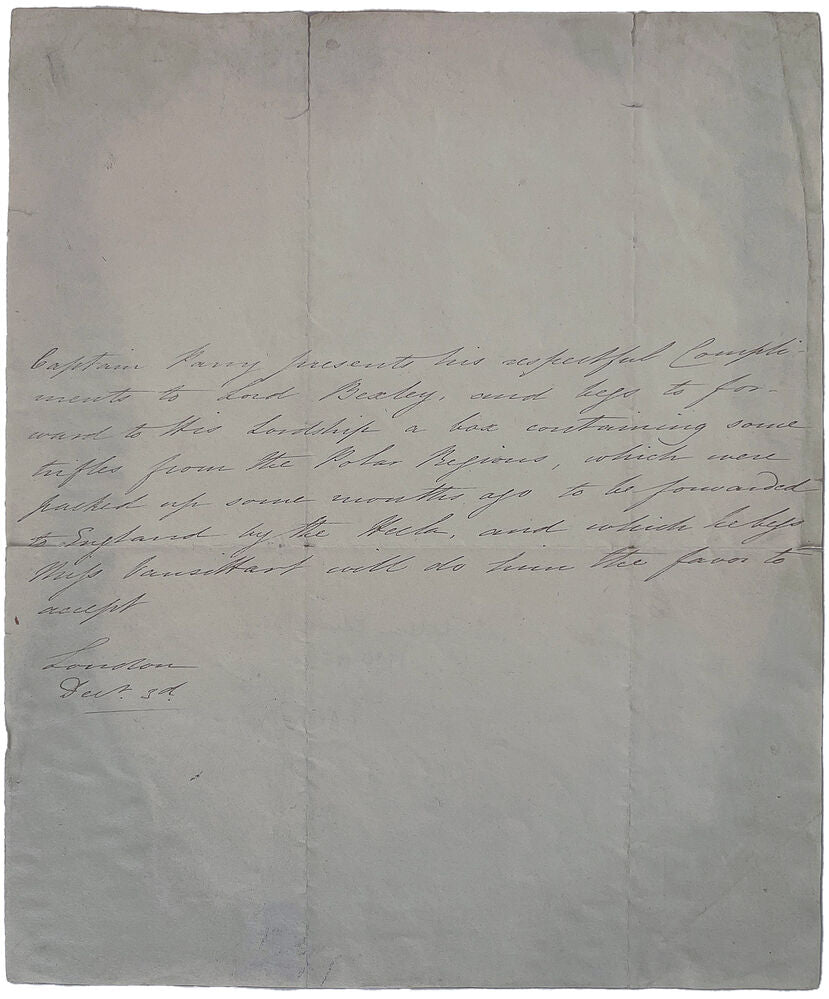 Captain Parry presents his respectful Compli-
ments to Lord Bexley, and begs to for-
ward to His Lordship a box containing some
trifles from the Polar Regions, which were
packed up some months ago to be forwarded
to England by the Hecla, and which he begs
Miss Vansittart will do him the favor to
accept
London
Decr. 3d.